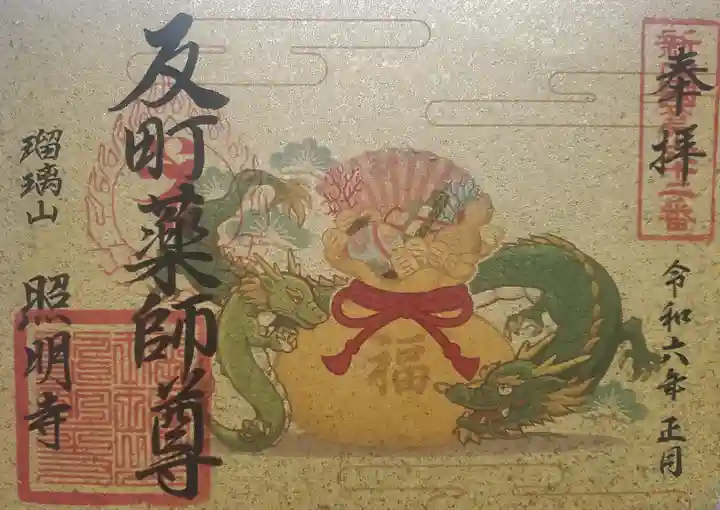 奉拝
令和六年 正月
反町薬師尊
瑠璃山
照明寺
福